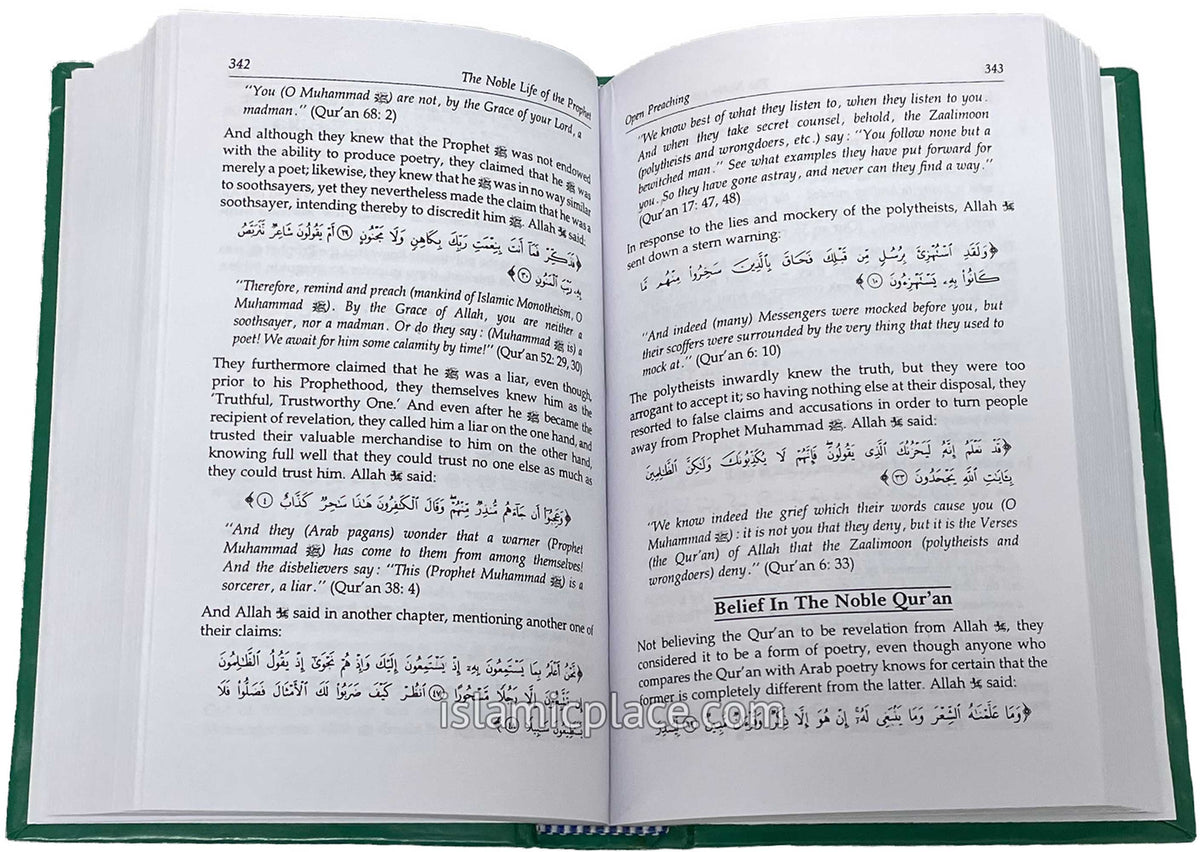 342
The Noble Life of the Prophet
“You (O Muhammad ﷺ) are not, by the Grace of your Lord, a
madman.” (Qur’an 68: 2)
And although they knew that the Prophet ﷺ was not endowed
with the ability to produce poetry, they claimed that he ﷺ was
merely a poet; likewise, they knew that he ﷺ was in no way similar
to soothsayers, yet they nevertheless made the claim that he was a
soothsayer, intending thereby to discredit him ﷺ. Allah ﷻ said:
﴿فَذَكِّرْ فَمَآ أَنتَ بِنِعْمَتِ رَبِّكَ بِكَاهِنٍ وَلَا مَجْنُونٍ ﴿٢٩﴾ أَمْ يَقُولُونَ شَاعِرٌ نَّتَرَبَّصُ
بِهِۦ رَيْبَ ٱلْمَنُونِ ﴿٣٠﴾﴾
“Therefore, remind and preach (mankind of Islamic Monotheism, O
Muhammad ﷺ). By the Grace of Allah, you are neither a
soothsayer, nor a madman. Or do they say: (Muhammad ﷺ is) a
poet! We await for him some calamity by time!” (Qur’an 52: 29, 30)
They furthermore claimed that he ﷺ was a liar, even though,
prior to his Prophethood, they themselves knew him as the
‘Truthful, Trustworthy One.’ And even after he ﷺ became the
recipient of revelation, they called him a liar on the one hand, and
trusted their valuable merchandise to him on the other hand,
knowing full well that they could trust no one else as much as
they could trust him. Allah ﷻ said:
﴿وَعَجِبُوٓا۟ أَن جَآءَهُم مُّنذِرٌ مِّنْهُمْ ۖ وَقَالَ ٱلْكَٰفِرُونَ هَٰذَا سَٰحِرٌ كَذَّابٌ ﴿٤﴾﴾
“And they (Arab pagans) wonder that a warner (Prophet
Muhammad ﷺ) has come to them from among themselves!
And the disbelievers say: “This (Prophet Muhammad ﷺ) is a
sorcerer, a liar.” (Qur’an 38: 4)
And Allah ﷻ said in another chapter, mentioning another one of
their claims:
﴿نَّحْنُ أَعْلَمُ بِمَا يَسْتَمِعُونَ بِهِۦٓ إِذْ يَسْتَمِعُونَ إِلَيْكَ وَإِذْ هُمْ نَجْوَىٰٓ إِذْ يَقُولُ ٱلظَّٰلِمُونَ
إِن تَتَّبِعُونَ إِلَّا رَجُلًا مَّسْحُورًا ﴿٤٧﴾ ٱنظُرْ كَيْفَ ضَرَبُوا۟ لَكَ ٱلْأَمْثَالَ فَضَلُّوا۟ فَلَا
يَسْتَطِيعُونَ سَبِيلًا
343
Open Preaching
“We know best of what they listen to, when they listen to you.
And when they take secret counsel, behold, the Zaalimoon
(polytheists and wrongdoers, etc.) say: “You follow none but a
bewitched man.” See what examples they have put forward for
you. So they have gone astray, and never can they find a way.”
(Qur’an 17: 47, 48)
In response to the lies and mockery of the polytheists, Allah ﷻ
sent down a stern warning:
﴿وَلَقَدِ ٱسْتُهْزِئَ بِرُسُلٍ مِّن قَبْلِكَ فَحَاقَ بِٱلَّذِينَ سَخِرُوا۟ مِنْهُم مَّا
كَانُوا۟ بِهِۦ يَسْتَهْزِءُونَ ﴿١٠﴾﴾
“And indeed (many) Messengers were mocked before you, but
their scoffers were surrounded by the very thing that they used to
mock at.” (Qur’an 6: 10)
The polytheists inwardly knew the truth, but they were too
arrogant to accept it; so having nothing else at their disposal, they
resorted to false claims and accusations in order to turn people
away from Prophet Muhammad ﷺ. Allah ﷻ said:
﴿قَدْ نَعْلَمُ إِنَّهُۥ لَيَحْزُنُكَ ٱلَّذِى يَقُولُونَ ۖ فَإِنَّهُمْ لَا يُكَذِّبُونَكَ وَلَٰكِنَّ ٱلظَّٰلِمِينَ
بِـَٔايَٰتِ ٱللَّهِ يَجْحَدُونَ ﴿٣٣﴾﴾
“We know indeed the grief which their words cause you (O
Muhammad ﷺ): it is not you that they deny, but it is the Verses
(the Qur’an) of Allah that the Zaalimoon (polytheists and
wrongdoers) deny.” (Qur’an 6: 33)
Belief In The Noble Qur’an
Not believing the Qur’an to be revelation from Allah ﷻ, they
considered it to be a form of poetry, even though anyone who
compares the Qur’an with Arab poetry knows for certain that the
former is completely different from the latter. Allah ﷻ said:
﴿وَمَا عَلَّمْنَٰهُ ٱلشِّعْرَ وَمَا يَنۢبَغِى لَهُۥٓ ۚ إِنْ هُوَ إِلَّا ذِكْرٌ وَقُرْءَانٌ مُّبِينٌ ﴿٦٩﴾ لِّيُنذِرَ
islamicplace.com